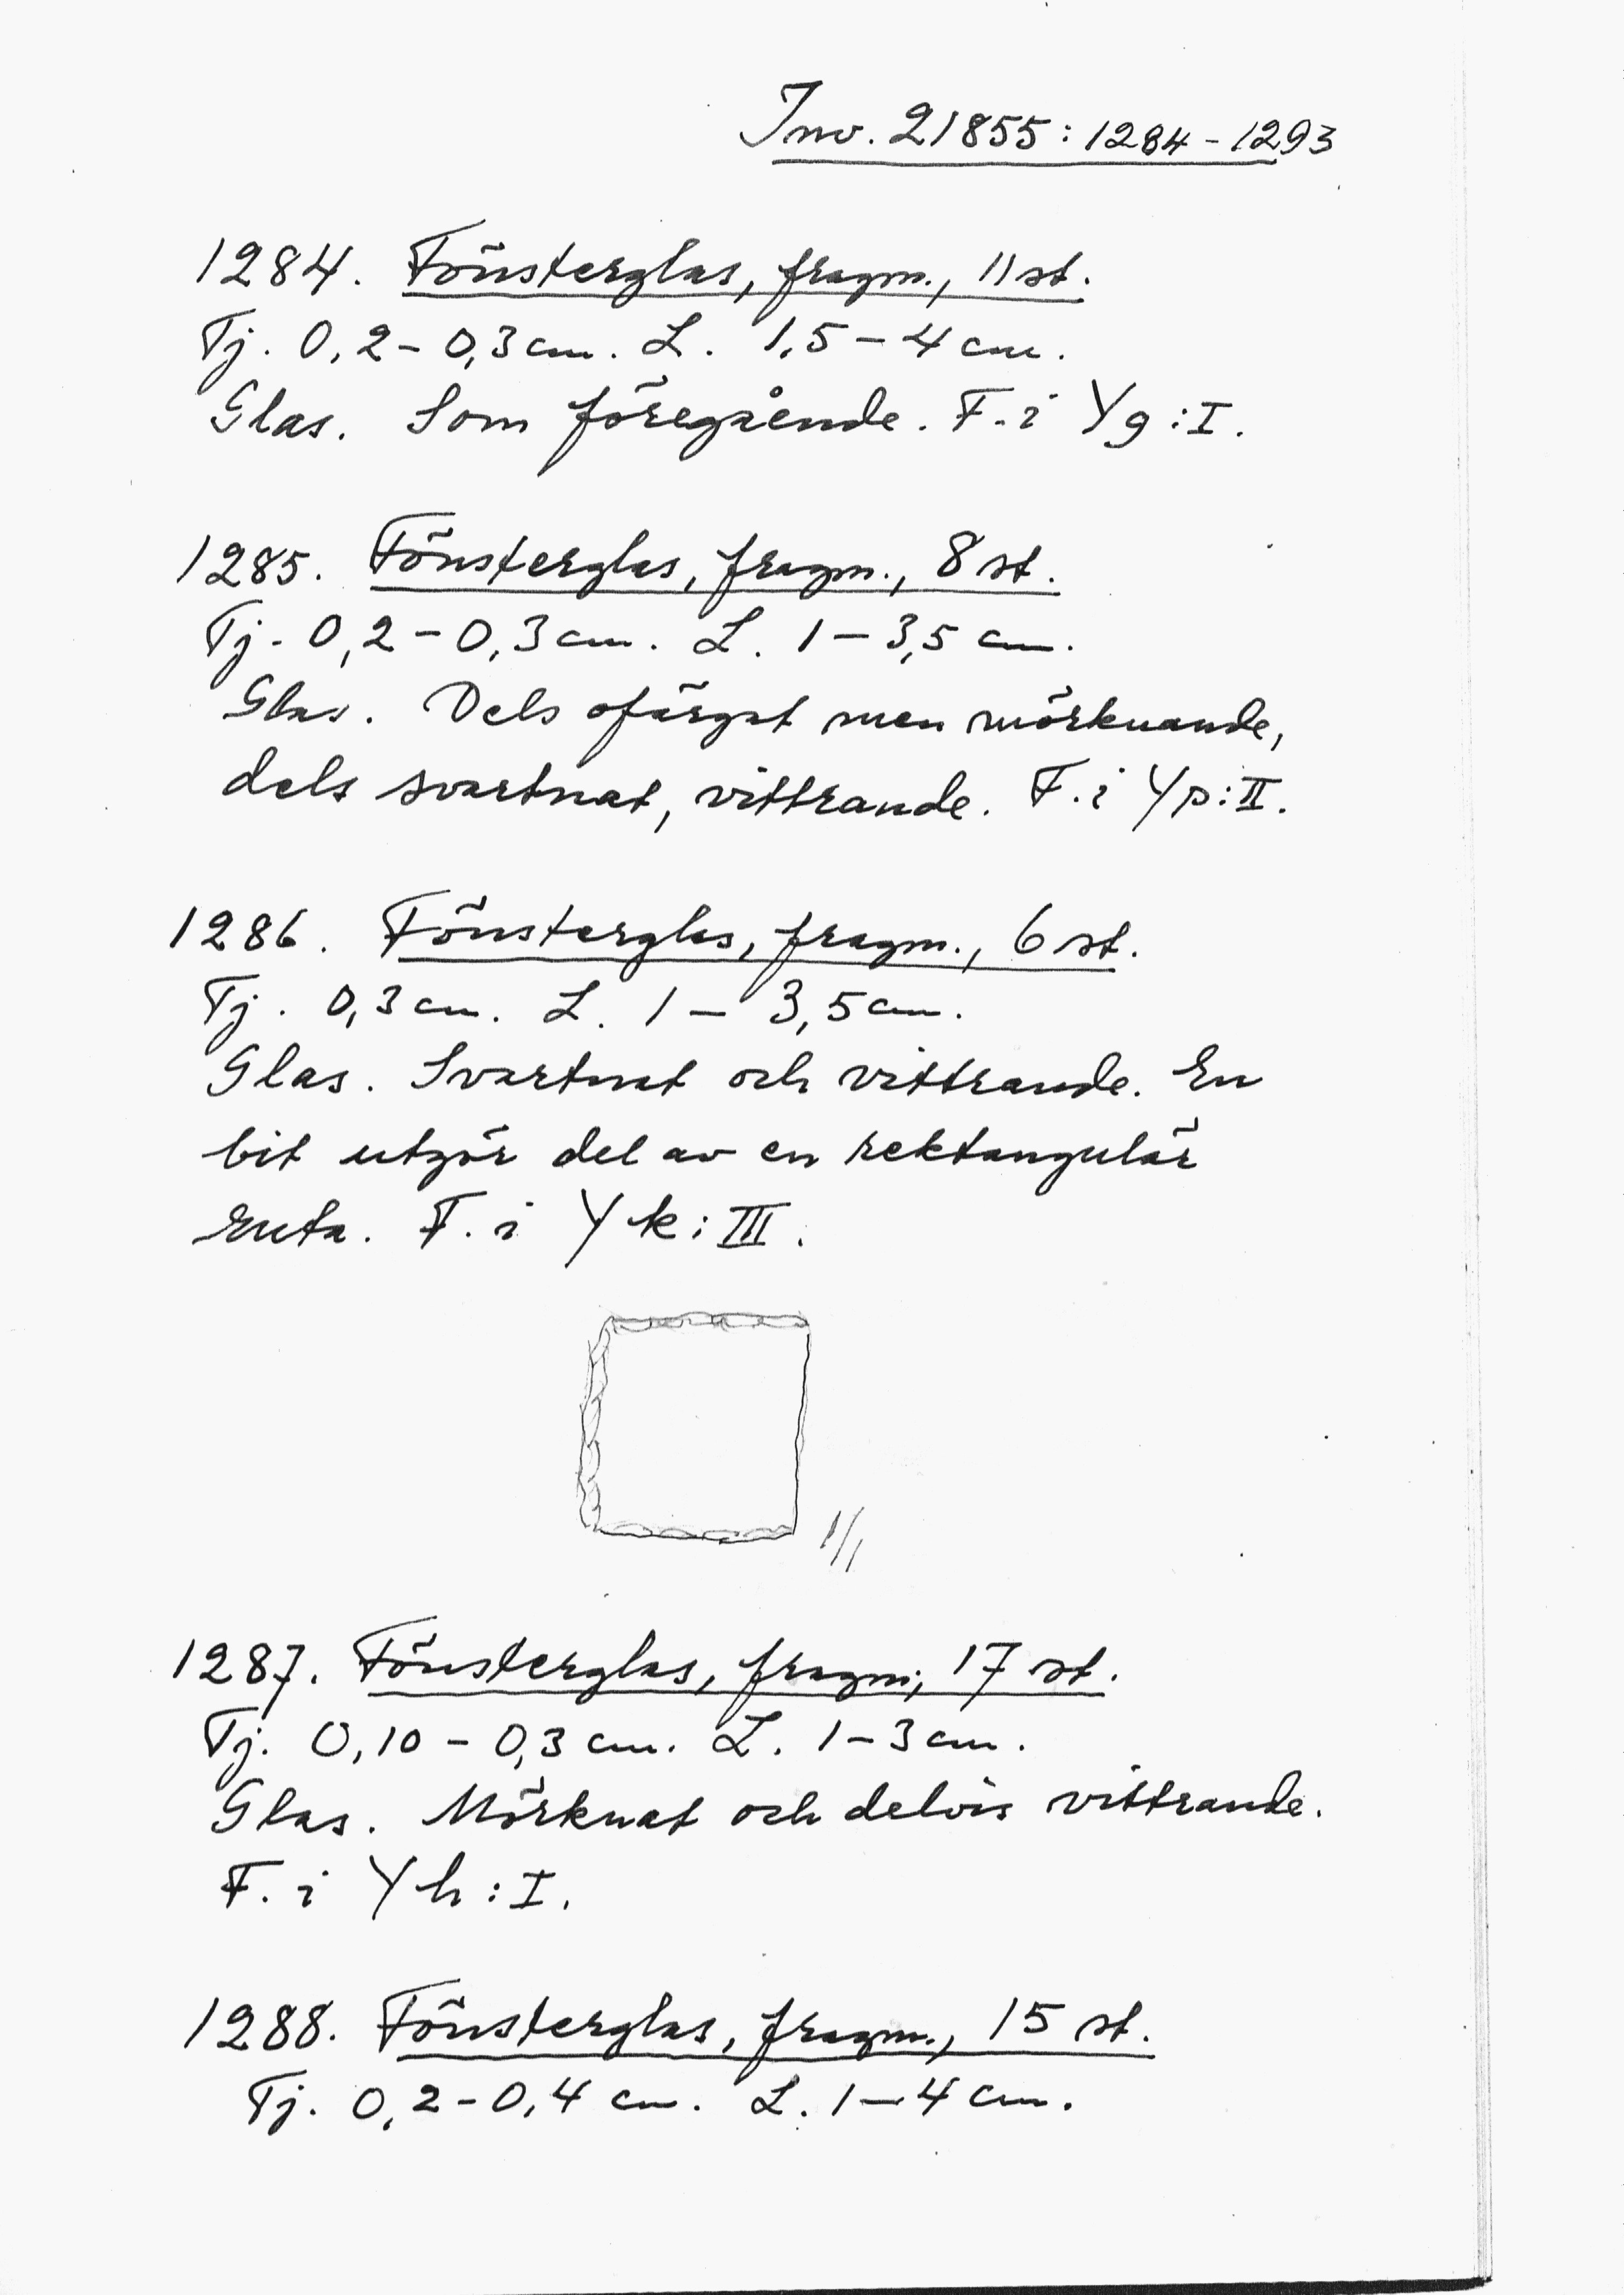 Inv. 21855:1284-1293
1284. Fönsterglas, fragm., 11 st.
Tj. 0,2-0,3 cm. L. 1,5-4 cm.
Glas. Som föregående. F. i Yg:I.
1285. Fönsterglas, fragm., 8 st.
Tj. 0,2-0,3 cm. L. 1-3,5 cm.
Glas. Dels ofärgat men mörknande,
dels svartnat, vittrande. F. i Yp:II.
1286. Fönsterglas, fragm., 6 st.
Tj. 0,3 cm. L. 1-3,5 cm.
Glas. Svartnat och vittrande. En
bit utgör del av en rektangulär
ruta. F. i Yk:III.
1/1
1287. Fönsterglas, fragm., 17 st.
Tj. 0,10-0,3 cm. L. 1-3 cm.
Glas. Mörknat och delvis vittrande.
F. i Yh:I.
1288. Fönsterglas, fragm., 15 st.
Tj. 0,2-0,4 cm. L. 1-4 cm.